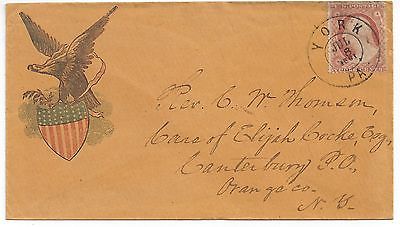 YORK
PA
JUL
8
Rev. C. W. Thomson,
Care of Elijah Cocke, Esq,
Canterbury P.O.,
Orange co.
N. Y.